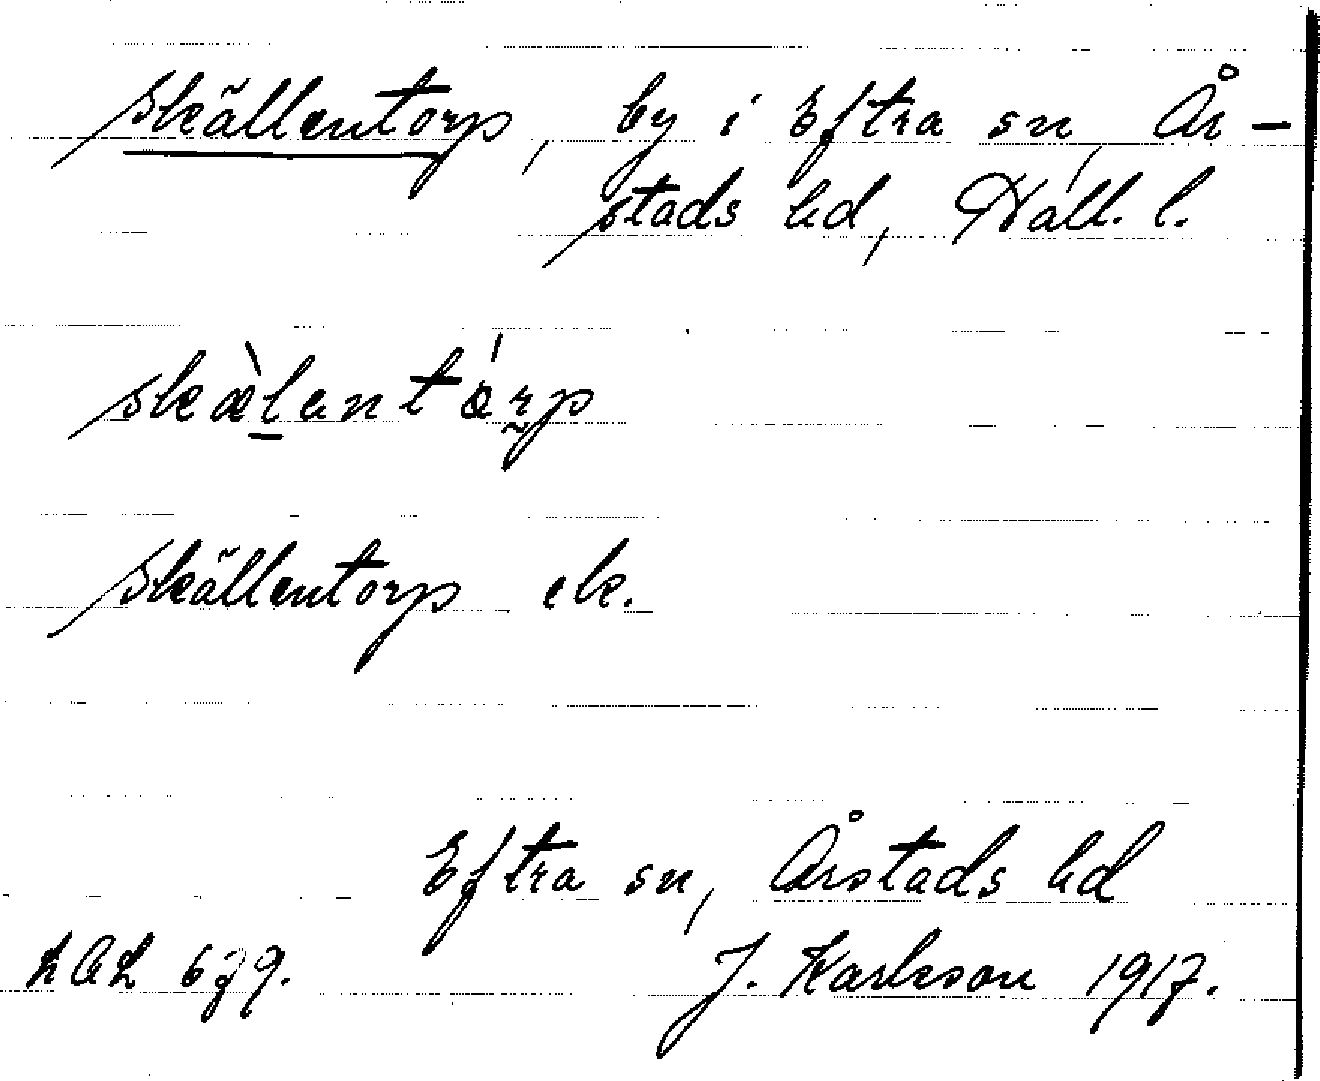 Skällentorp, by i Eftra sn, År-
stads hd, Hall. l.
skæ̀lantɑ́rp
Skällentorp ek.
Eftra sn, Årstads hd
LAL 679. J. Karlsson 1917.